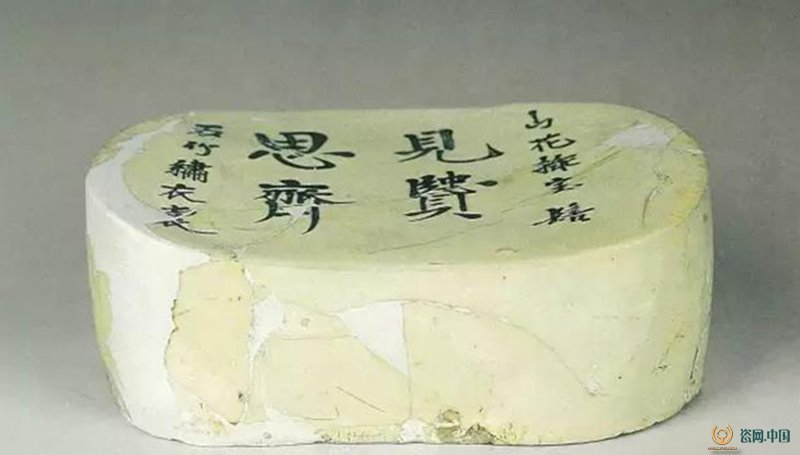 山花插宝髻
見賢
思齊
石竹繡衣裳
瓷网.中国